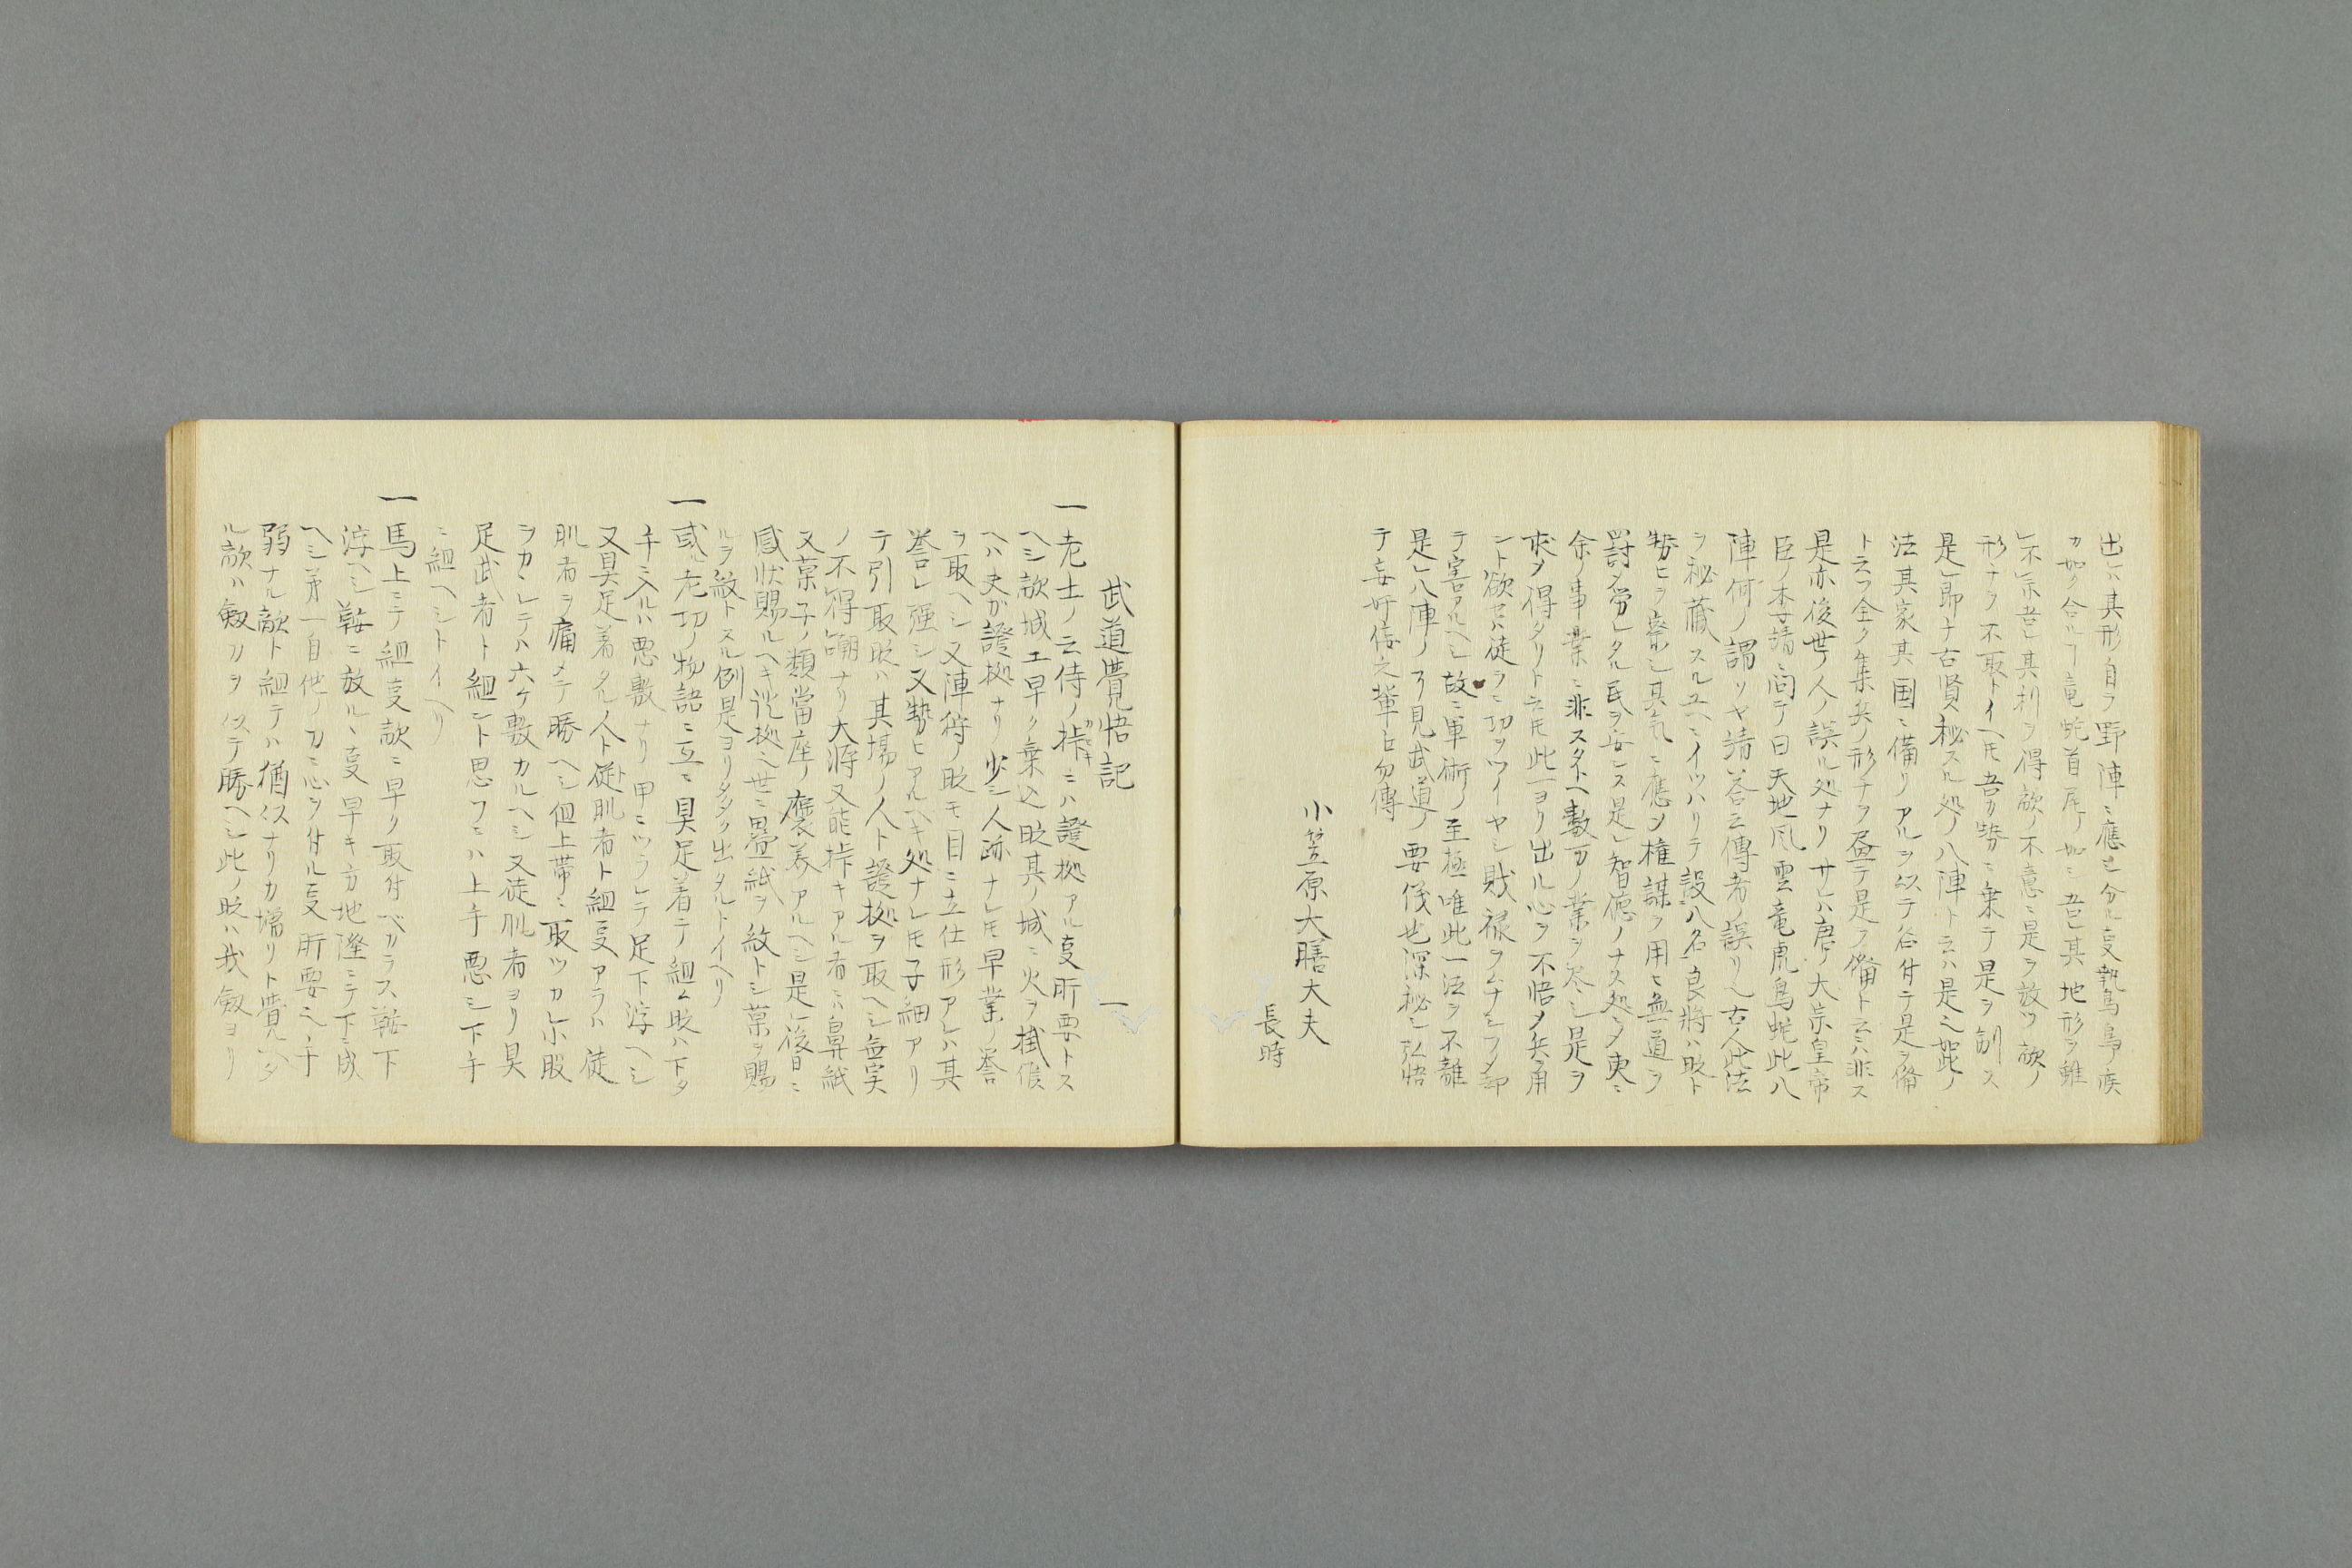 出ハ其形自ラ野陣ニ應シ分ル事鷙鳥ノ疾
カ如ク合ル丁竜蛇首尾ノ如シ吾ヒ其地形ヲ離
レ不宗吾レ其利ヲ得敵ノ不意ニ是ヲ放ツ敵ノ
形チヲ不取トイヘ𪜈吾カ勢ニ乗テ是ヲ制ス
是レ即チ古賢ノ秘スル処ノ八陣ト云ハ是也如此ノ
法其家其国ニ備リアルヲ以テ名付テ是ヲ備
ト云フ全ク集兵ノ形チヲ畫テ是ヲ備ト云ニハ非ス
是亦後世ノ人ノ誤ル処ナリ サレハ唐ノ大宗皇帝
臣ノ李靖ニ問テ曰天地風雲竜虎鳥蛇此八
陣何ノ謂ソヤ靖答云傳者ノ誤リ也古人此法
ヲ秘蔵スルユヘニイツハリテ設八名良將ハ敗ト
勢ヒヲ察シ其気ニ應シ権謀ヲ用ヒ無道ヲ
罸メ労レタル民ヲ安ンス是レ智徳ノナス処ニメ更ニ
余ノ事業ニ非スタトヘ數万ノ業ヲ尽シ是ヲ
求メ得タリト云𪜈此一ヨリ出ル心ヲ不悟メ兵ヲ用
ント欲セハ徒ラニ功ヲツイヤシ財禄ヲムナシフメ却
テ害アルヘシ故ニ軍術ノ至極唯此一法ヲ不離
是レ八陣ノ了見武道ノ要儀也深秘シ弘悟
テ妄奸佞之輩ニ勿傳
小笠原大膳大夫
長時
武道覺悟記
一老士ノ云侍ノ挊カセキニハ證拠アル事肝要トス
ヘシ敵城エ早ク乗込時其ノ城ニ火ヲ掛候
ヘハ夫カ證拠ナリ少シ人跡ナレ𪜈早業ノ誉
ヲ取ヘシ又陣符ノ時モ目ニ立仕形アレハ其
誉レ強シ又勢ヒアルヘキ処ナレ𪜈子細アリ
テ引取時ハ其場ノ人ト證拠ヲ取ヘシ無実
ノ不得嘲ナリ大將又能挊キアル者ニハ鼻紙
又菓子ノ類當座ノ褒美アルヘシ是レ後日ニ
感状賜ルヘキ證拠也世ニ畳紙ヲ紋トシ菓ヲ賜
ルヲ紋トスル例是ヨリタタク出タルトイヘリ
一或ル老功ノ物語ニ互ニ具足着テ組ム時ハ下タ
手ニ入ルハ悪敷ナリ甲ニツラレテ足下浮ヘシ
又具足着タル人ト徒肌者ト組事アラハ徒
肌者ヲ痛メテ勝ヘシ但上帯ニ取ツカレ小股
ヲカヽレテハ六ケ敷カルヘシ又徒肌者ヨリ具
足武者ト組ント思フニハ上手悪シ下手
ニ組ヘシトイヘリ
一馬上ニテ組事敵ニ早ク取付ベカラス鞍下
浮ヘシ鞍ニ放ルヽ事早キ方地隆ニテ下ニ成
ヘシ第一自他ノ力ニ心ヲ付ル事肝要也手
弱ナル敵ト組テハ猶以ナリカ増リト覺ヘタ
ル敵ハ劔刀ヲ以テ勝ヘシ此ノ時ハ我劔ヨリ